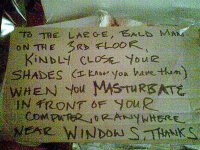 TO THE LARGE, BALD MAN
ON THE 3RD FLOOR,
KINDLY CLOSE YOUR
SHADES (I know you have them)
WHEN YOU MASTURBATE
IN FRONT OF YOUR
COMPUTER, OR ANYWHERE
NEAR WINDOWS. THANKS